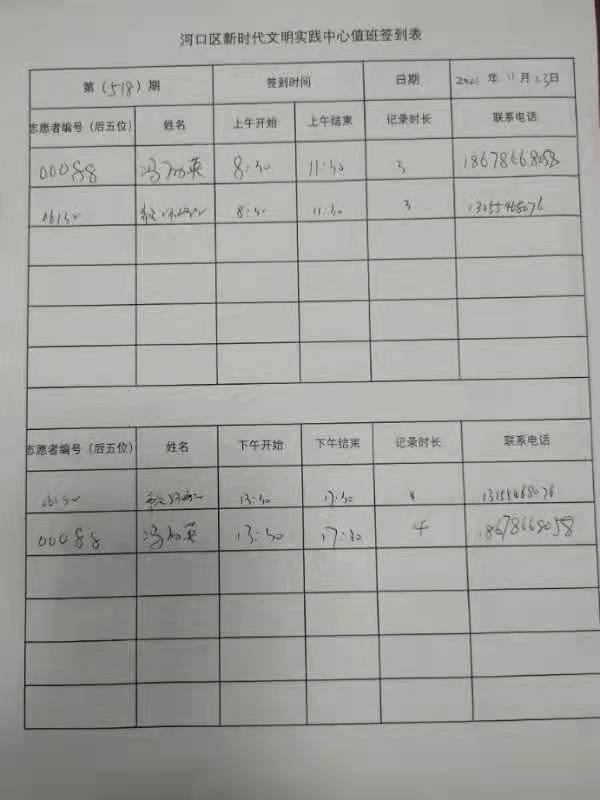 河口区新时代文明实践中心值班签到表
第（518）期 签到时间 日期 2021年11月23日
志愿者编号（后五位） 姓名 上午开始 上午结束 记录时长 联系电话
00088 冯 英 8:30 11:30 3 18678668058
06130 8:30 11:30 3
志愿者编号（后五位） 姓名 下午开始 下午结束 记录时长 联系电话
06130 13:30 17:30 4
00088 冯 英 13:30 17:30 4 18678668058